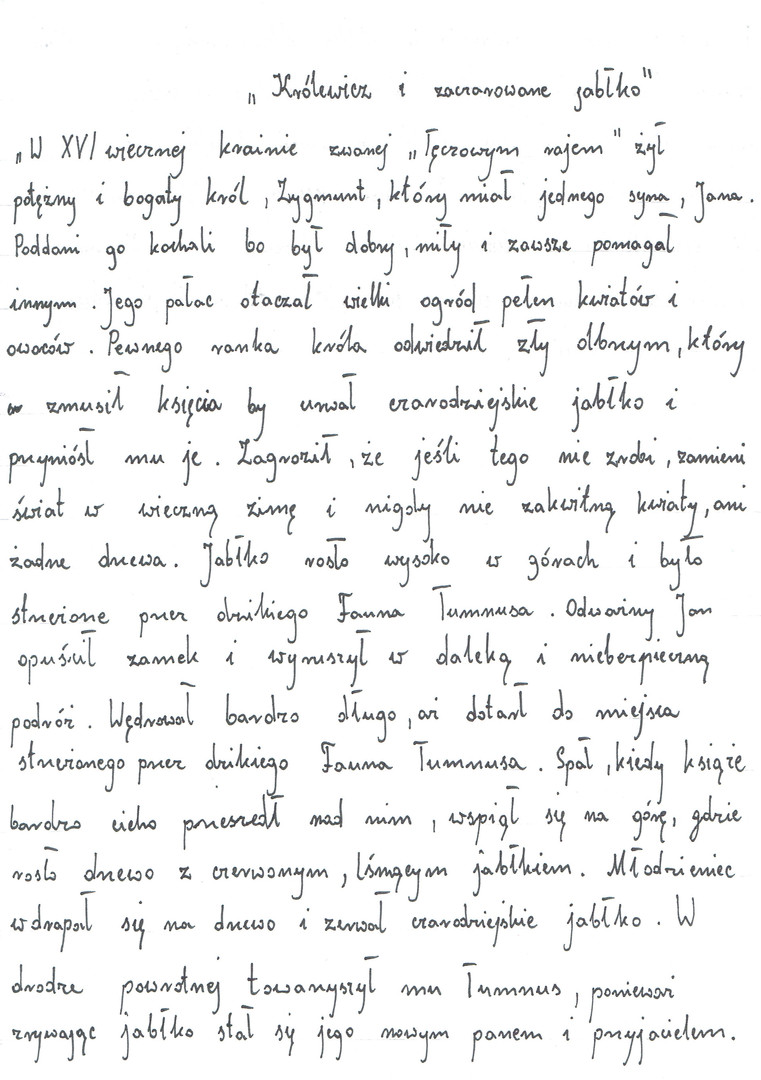 „Królewicz i zaczarowane jabłko"
„W XVI wiecznej krainie zwanej „Tęczowym rajem" żył
potężny i bogaty król, Zygmunt, który miał jednego syna, Jana.
Poddani go kochali bo był dobry, miły i zawsze pomagał
innym. Jego pałac otaczał wielki ogród pełen kwiatów i
owoców. Pewnego ranka króla odwiedził zły olbrzym, który
zmusił księcia by urwał czarodziejskie jabłko i
przyniósł mu je. Zagroził, że jeśli tego nie zrobi, zamieni
świat w wieczną zimę i nigdy nie zakwitną kwiaty, ani
żadne drzewa. Jabłko rosło wysoko w górach i było
strzeżone przez dzikiego Fauna Tumnusa. Odważny Jan
opuścił zamek i wyruszył w daleką i niebezpieczną
podróż. Wędrował bardzo długo, aż dotarł do miejsca
strzeżonego przez dzikiego Fauna Tumnusa. Spał, kiedy książę
bardzo cicho przeszedł nad nim, wspiął się na górę, gdzie
rosło drzewo z czerwonym, lśniącym jabłkiem. Młodzieniec
wdrapał się na drzewo i zerwał czarodziejskie jabłko. W
drodze powrotnej towarzyszył mu Tumnus, ponieważ
zrywając jabłko stał się jego nowym panem i przyjacielem.